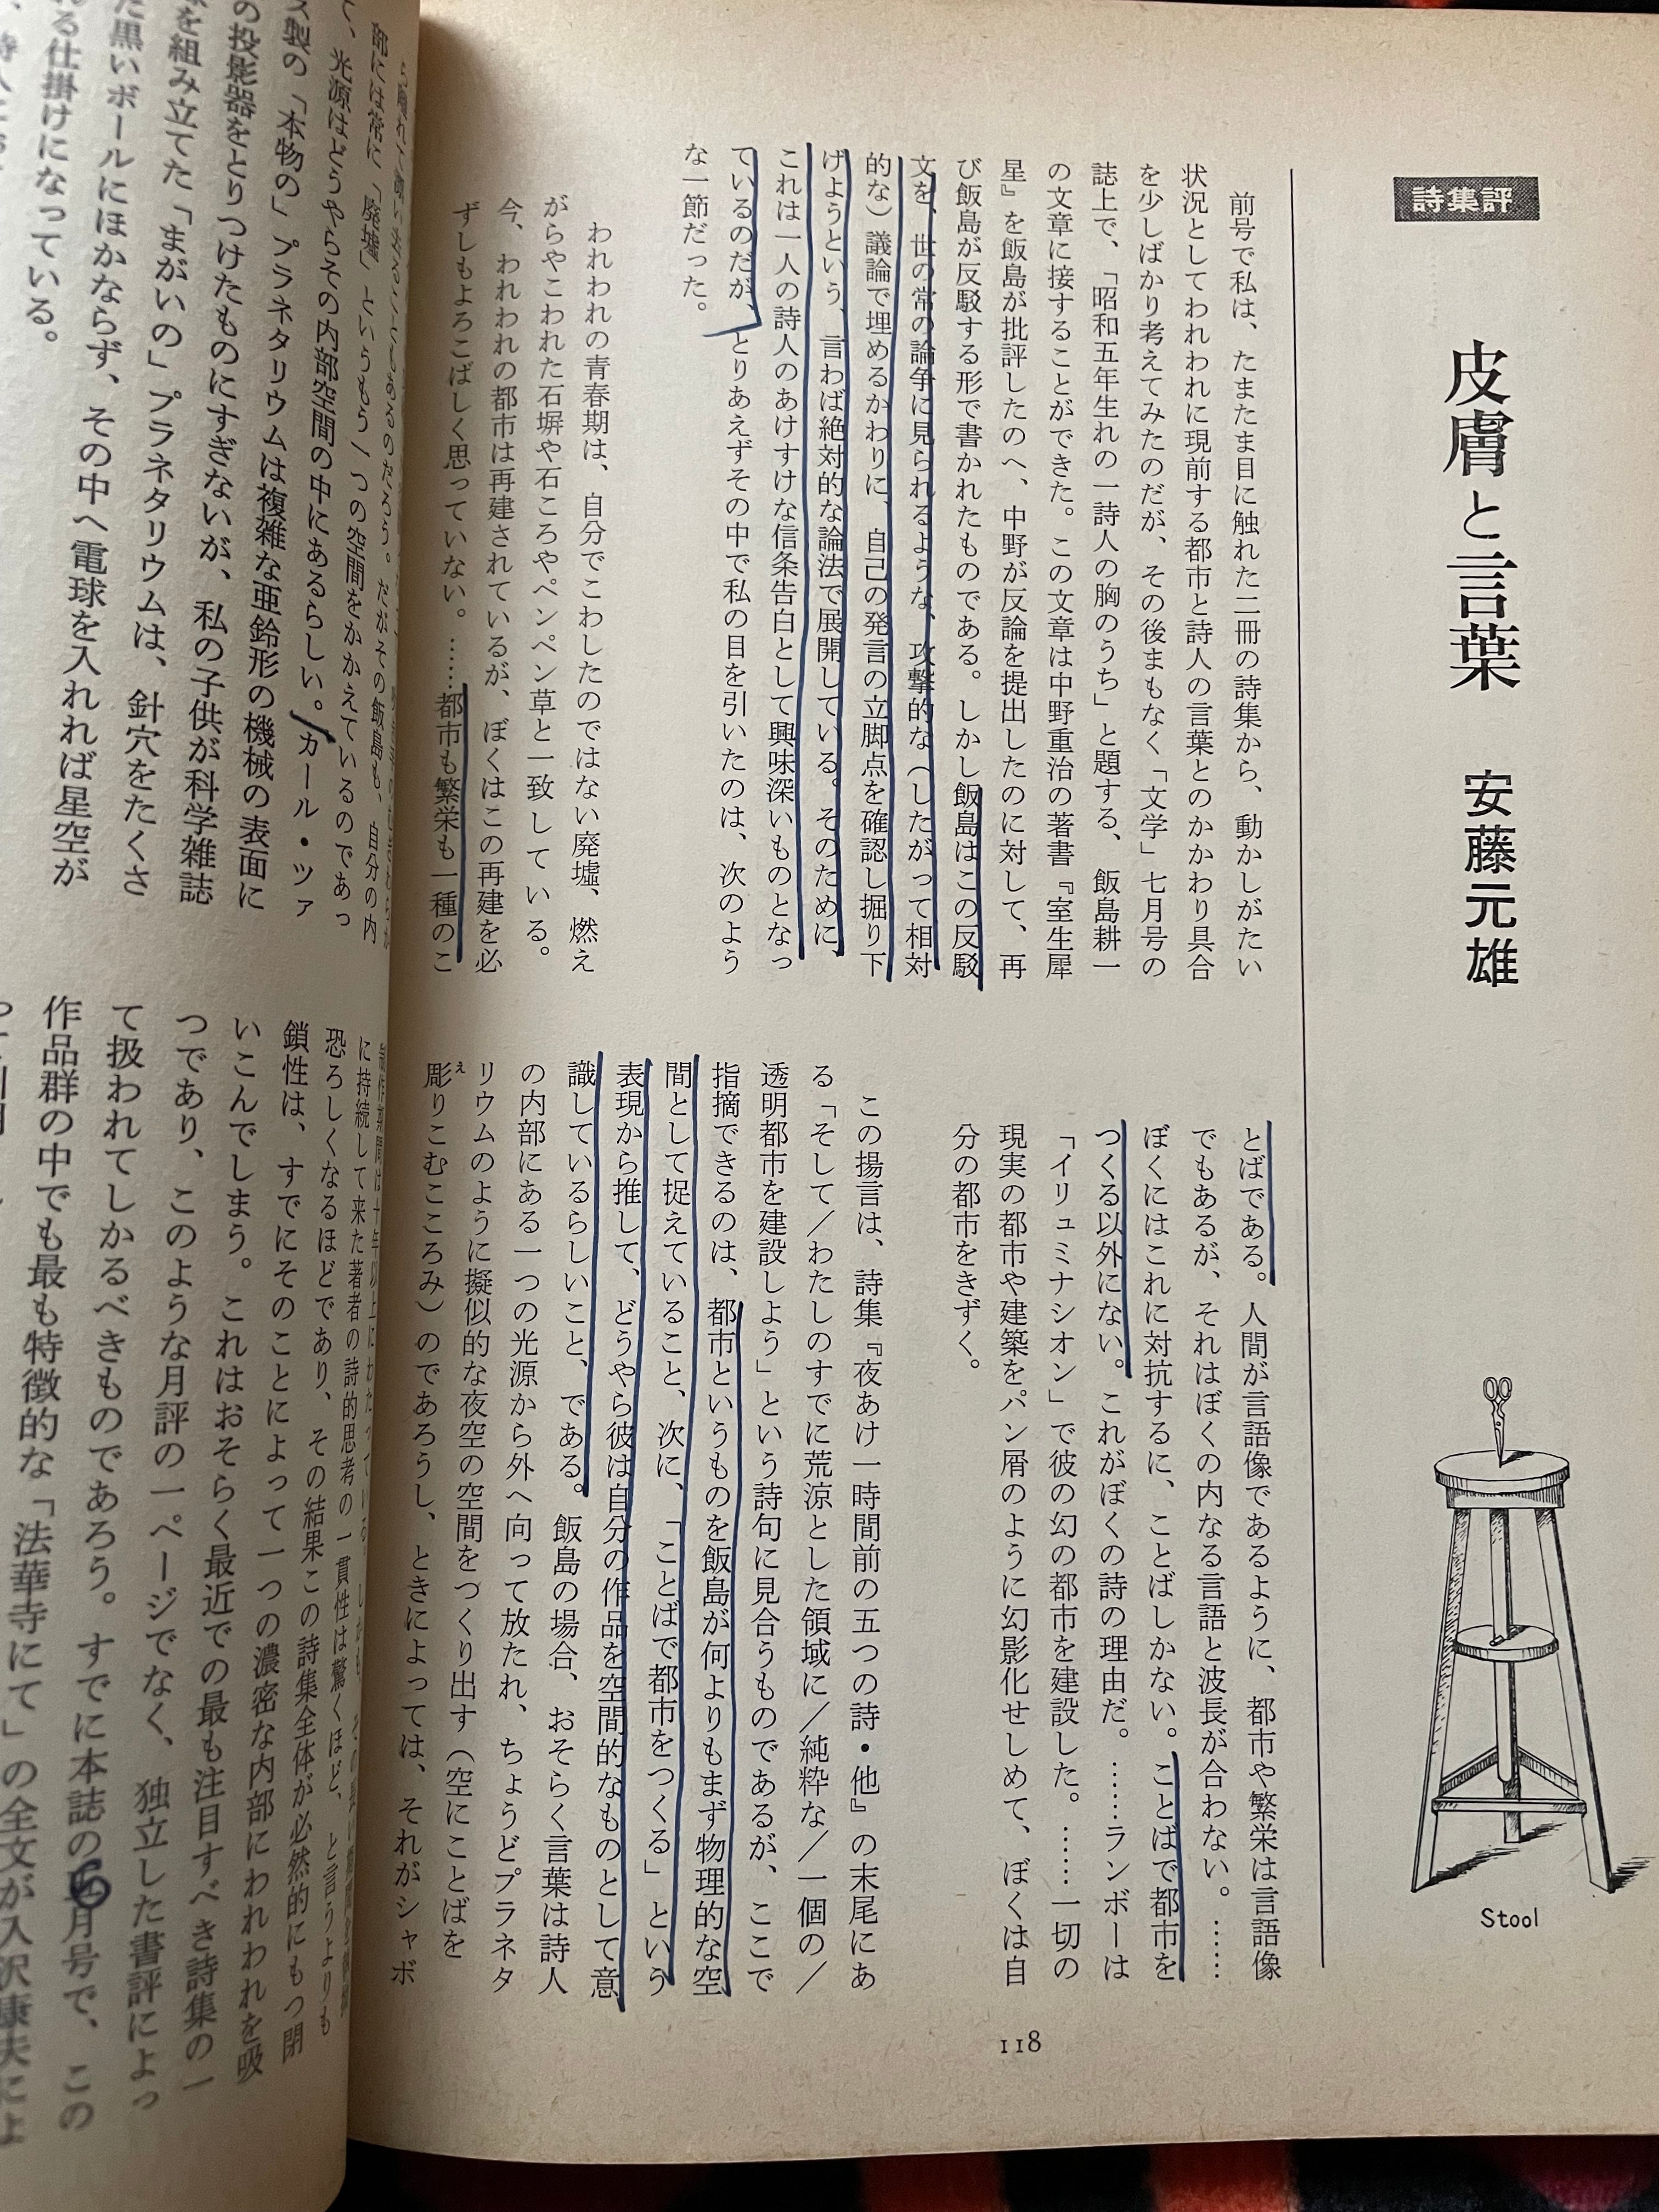 詩集評
皮膚と言葉　安藤元雄
前号で私は、たまたま目に触れた二冊の詩集から、動かしがたい
状況としてわれわれに現前する都市と詩人の言葉とのかかわり具合
を少しばかり考えてみたのだが、その後まもなく「文学」七月号の
誌上で、「昭和五年生れの一詩人の胸のうち」と題する、飯島耕一
の文章に接することができた。この文章は中野重治の著書『室生犀
星』を飯島が批評したのへ、中野が反論を提出したのに対して、再
び飯島が反駁する形で書かれたものである。しかし飯島はこの反駁
文を、世の常の論争に見られるような、攻撃的な（したがって相対
的な）議論で埋めるかわりに、自己の発言の立脚点を確認し掘り下
げようという、言わば絶対的な論法で展開している。そのために、
これは一人の詩人のあけすけな信条告白として興味深いものとなっ
ているのだが、とりあえずその中で私の目を引いたのは、次のよう
な一節だった。
われわれの青春期は、自分でこわしたのではない廃墟、燃え
がらやこわれた石塀や石ころやペンペン草と一致している。
今、われわれの都市は再建されているが、ぼくはこの再建を必
ずしもよろこばしく思っていない。……都市も繁栄も一種のこ
とばである。人間が言語像であるように、都市や繁栄は言語像
でもあるが、それはぼくの内なる言語と波長が合わない。……
ぼくにはこれに対抗するに、ことばしかない。ことばで都市を
つくる以外にない。これがぼくの詩の理由だ。……ランボーは
「イリュミナシオン」で彼の幻の都市を建設した。……一切の
現実の都市や建築をパン屑のように幻影化せしめて、ぼくは自
分の都市をきずく。
この揚言は、詩集『夜あけ一時間前の五つの詩・他』の末尾にあ
る「そして／わたしのすでに荒涼とした領域に／純粋な／一個の／
透明都市を建設しよう」という詩句に見合うものであるが、ここで
指摘できるのは、都市というものを飯島が何よりもまず物理的な空
間として捉えていること、次に、「ことばで都市をつくる」という
表現から推して、どうやら彼は自分の作品を空間的なものとして意
識しているらしいこと、である。飯島の場合、おそらく言葉は詩人
の内部にある一つの光源から外へ向って放たれ、ちょうどプラネタ
リウムのように擬似的な夜空の空間をつくり出す（空にことばを
彫りこむこころみ）のであろうし、ときによっては、それがシャボ
Stool
118
部には常に「廃墟」というもう一つの空間をかかえているのであっ
て、光源はどうやらその内部空間の中にあるらしい。カール・ツァ
イス製の「本物の」プラネタリウムは複雑な亜鈴形の機械の表面に
の投影器をとりつけたものにすぎないが、私の子供が科学雑誌
を組み立てた「まがいの」プラネタリウムは、針穴をたくさ
た黒いボールにほかならず、その中へ電球を入れれば星空が
る仕掛けになっている。
に持続して来た著者の詩的思考の一貫性は驚くほど、と言うよりも
恐ろしくなるほどであり、その結果この詩集全体が必然的にもつ閉
鎖性は、すでにそのことによって一つの濃密な内部にわれわれを吸
いこんでしまう。これはおそらく最近での最も注目すべき詩集の一
つであり、このような月評の一ページでなく、独立した書評によっ
て扱われてしかるべきものであろう。すでに本誌の6月号で、この
作品群の中でも最も特徴的な「法華寺にて」の全文が入沢康夫によ